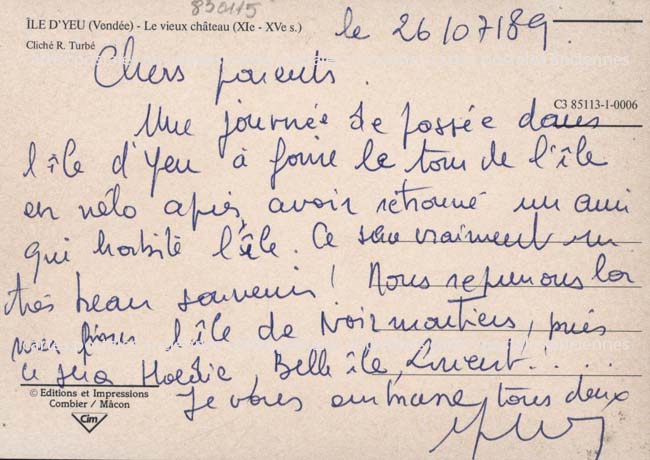 830115
ÎLE D'YEU (Vendée) - Le vieux château (XIe - XVe s.)
Cliché R. Turbé
le 26/07/89
Chers parents.
C3 85113-1-0006
Une journée de passée dans
l'île d'Yeu à faire le tour de l'île
en vélo après avoir retrouvé un ami
qui habite l'île. Ce sera vraiment un
très beau souvenir! Nous reprenons la
l'île de Noirmoutiers, puis
ce sera Hoedic, Belle île, Lorient.....
Je vous embrasse tous deux
© Editions et Impressions
Combier / Mâcon
Cim